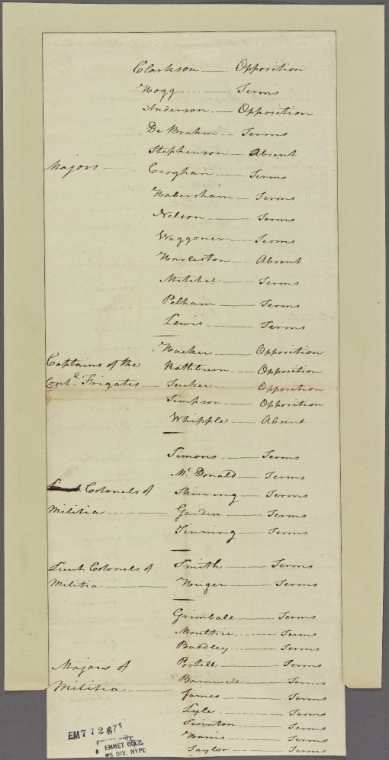 Clarkson — Opposition
Hogg — Terms
Anderson — Opposition
De Brahm — Terms
Stephenson — Absent
Majors — Croghan — Terms
Habersham — Terms
Nelson — Terms
Waggoner — Terms
Harleston — Absent
Mitchel — Terms
Pelham — Terms
Lewis — Terms
Hacker — Opposition
Captains of the Rathburn — Opposition
Contl. Frigates — Tucker — Opposition
Simpson — Opposition
Whipple — Absent
Simons — Terms
Mc Donald — Terms
Colonels of Skirving — Terms
Militia — Garden — Terms
Terms
Lieut Colonels of Smith — Terms
Militia — Huger — Terms
Grimball — Terms
Moultrie — Terms
Baddley — Terms
Majors of Postill — Terms
Militia — Terms
James — Terms
Lyle — Terms
Swinton — Terms
Harris — Terms
Taylor — Terms
EM7726
EMMET COLL.
MS DIV. NYPL